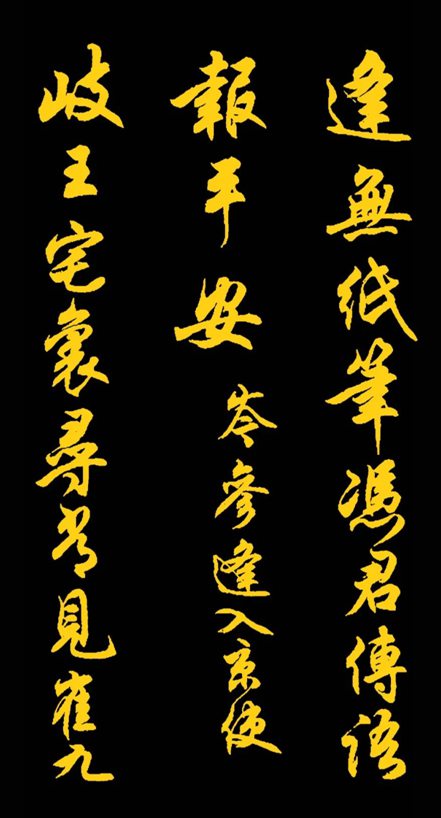 逢無紙筆憑君傳語
報平安 岑參逢入京使
歧王宅裏尋常見崔九